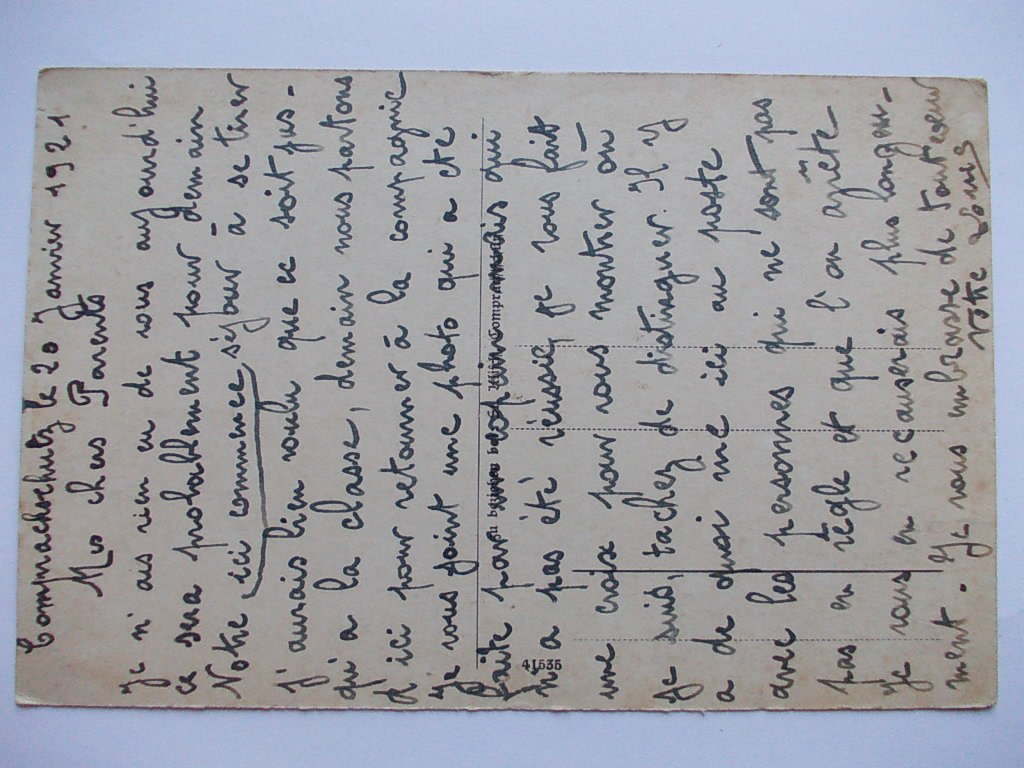 Comprachschutz le 20 Janvier 1921
Mes chers Parents
Je n'ais rien eu de vous aujourd'hui
ce sera probablement pour demain
Notre séjour à se tirer
ici commence
j'aurais bien voulu que ce soit jus-
qu'a la classe, demain nous partons
d'ici pour retourner à la compagnie
Je vous joint une photo qui a été
faite par un qui
n'a pas été réussie, je vous fait
une croix pour vous montrer ou
je suis, tachez de distinguer. Il y
a de quoi rire ici au poste
avec les personnes qui ne sont pas
pas en règle et que l'on arrête
Je vous en recauserais plus longue-
ment. Je vous embrasse de tout coeur
Votre Louis
41535